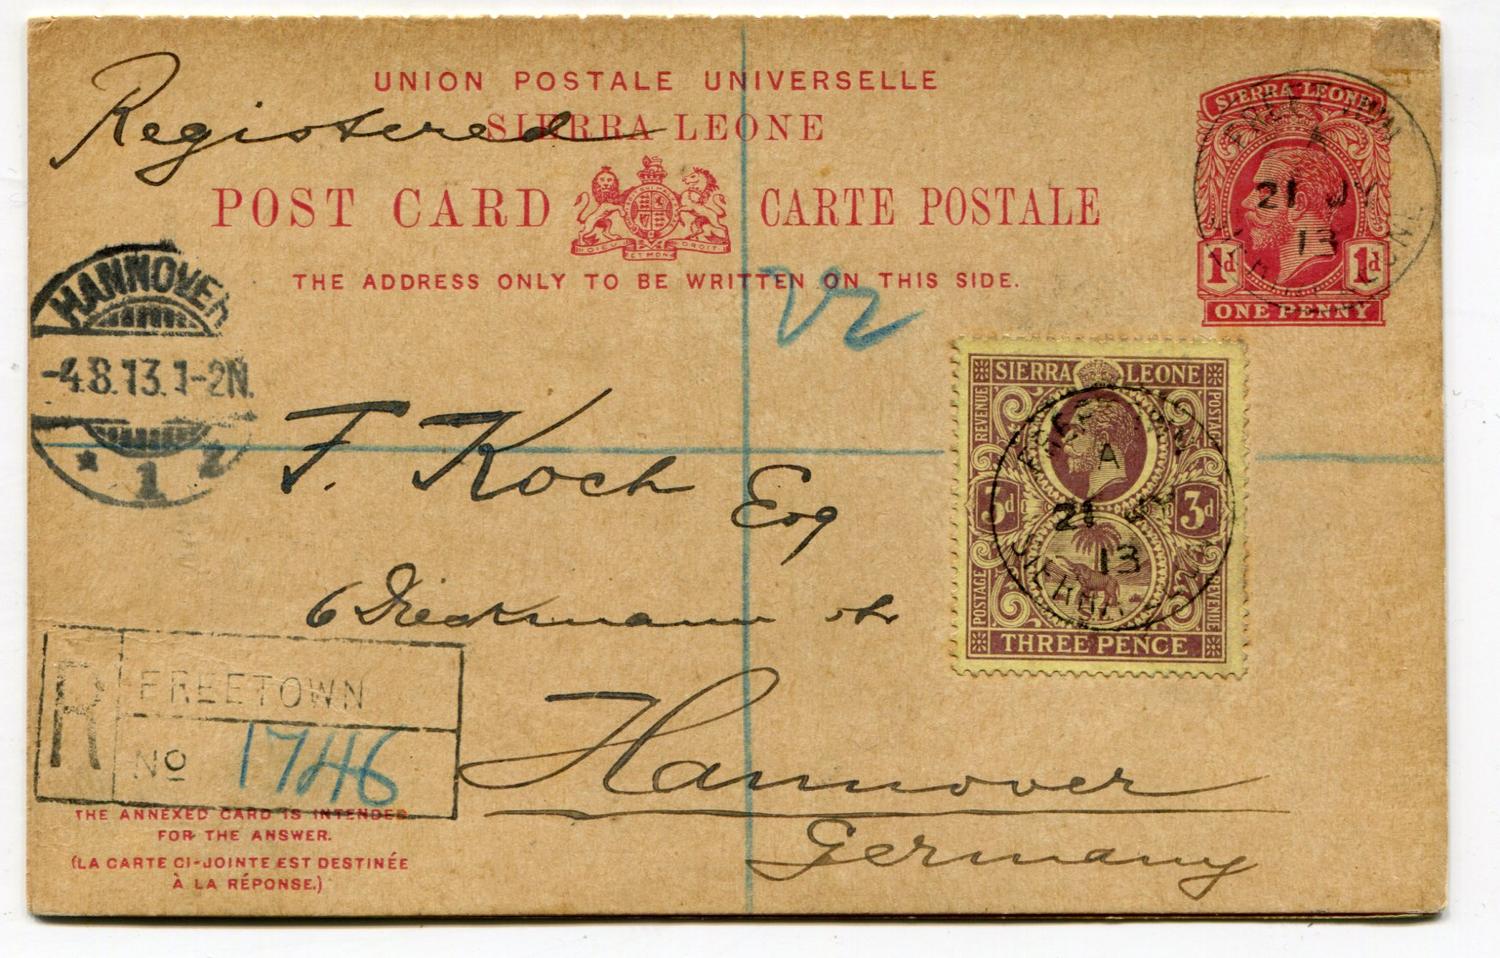 UNION POSTALE UNIVERSELLE
Registered
SIERRA LEONE
POST CARD CARTE POSTALE
THE ADDRESS ONLY TO BE WRITTEN ON THIS SIDE.
SIERRA LEONE
1d 1d
ONE PENNY
FREETOWN
A
21 JY
13
SIERRA LEONE
HANNOVER
-4.8.13.1-2N.
* 1 z
SIERRA LEONE
REVENUE
POSTAGE
POSTAGE
REVENUE
3d 3d
THREE PENCE
A
21 JY
13
F. Koch Esq
6 Dieckmann str
Hannover
Germany
R
FREETOWN
No 1746
THE ANNEXED CARD IS INTENDED
FOR THE ANSWER.
(LA CARTE CI-JOINTE EST DESTINÉE
À LA RÉPONSE.)